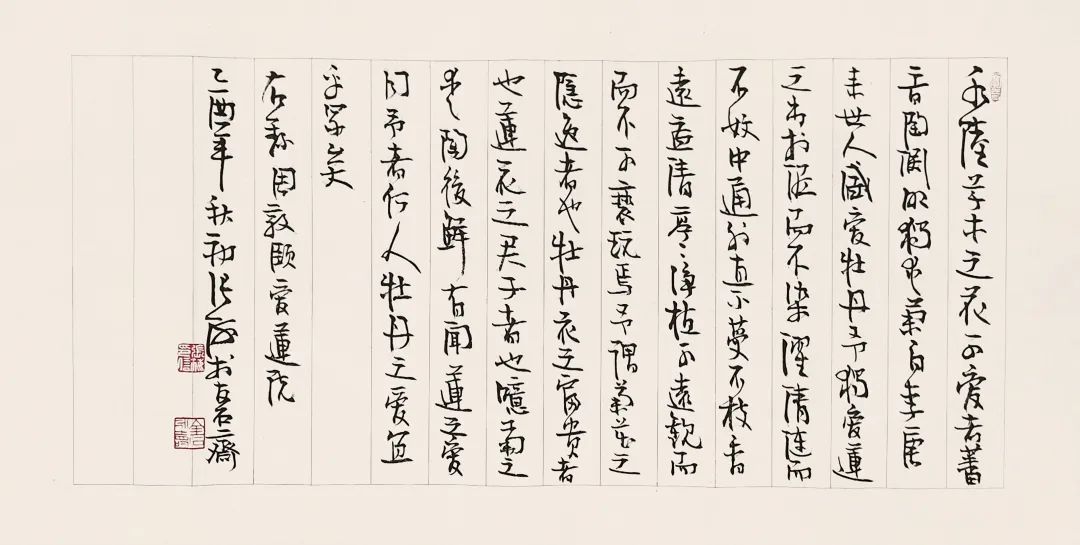 水陸草木之花可愛者蕃
晉陶淵明獨愛菊自李唐
来世人盛愛牡丹予獨愛蓮
之出於淤而不染濯清漣而
不妖中通外直不蔓不枝香
遠益清亭々淨植可遠觀而
而不可褻玩焉予謂菊花之
隱逸者也牡丹花之富貴者
也蓮花之君子者也噫菊之
愛陶後鮮有聞蓮之愛
同予者何人牡丹之愛宜
乎眾矣
右録周敦頤愛蓮説
乙酉年秋初於齋